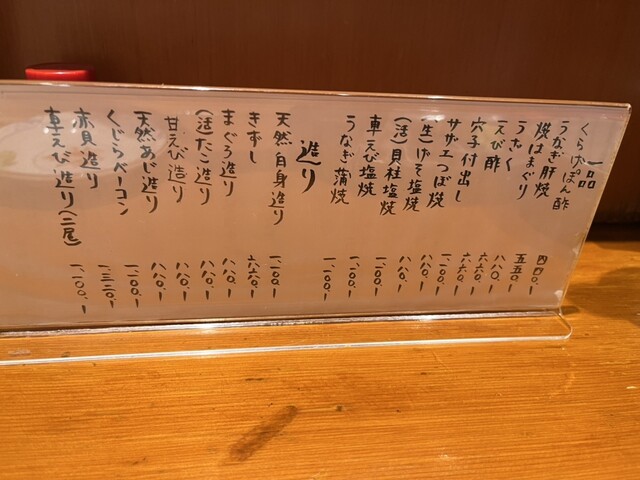 一品
くらげぽん酢 四四〇、ー
うなぎ肝焼 五五〇、ー
焼はまぐり 八八〇、ー
うざく 六六〇、ー
えび酢 六六〇、ー
穴子付出し 一、一〇〇、ー
サザエつぼ焼 八八〇、ー
(生)げそ塩焼 八八〇、ー
(活)貝柱塩焼 一、一〇〇、ー
車えび塩焼 一、一〇〇、ー
うなぎ蒲焼 一、一〇〇、ー
造り
天然白身造り 一、一〇〇、ー
きずし 六六〇、ー
まぐろ造り 八八〇、ー
(活)たこ造り 八八〇、ー
甘えび造り 八八〇、ー
天然あじ造り 八八〇、ー
くじらベーコン 一、一〇〇、ー
赤貝造り 一、三二〇、ー
車えび造り(二尾) 一、一〇〇、ー